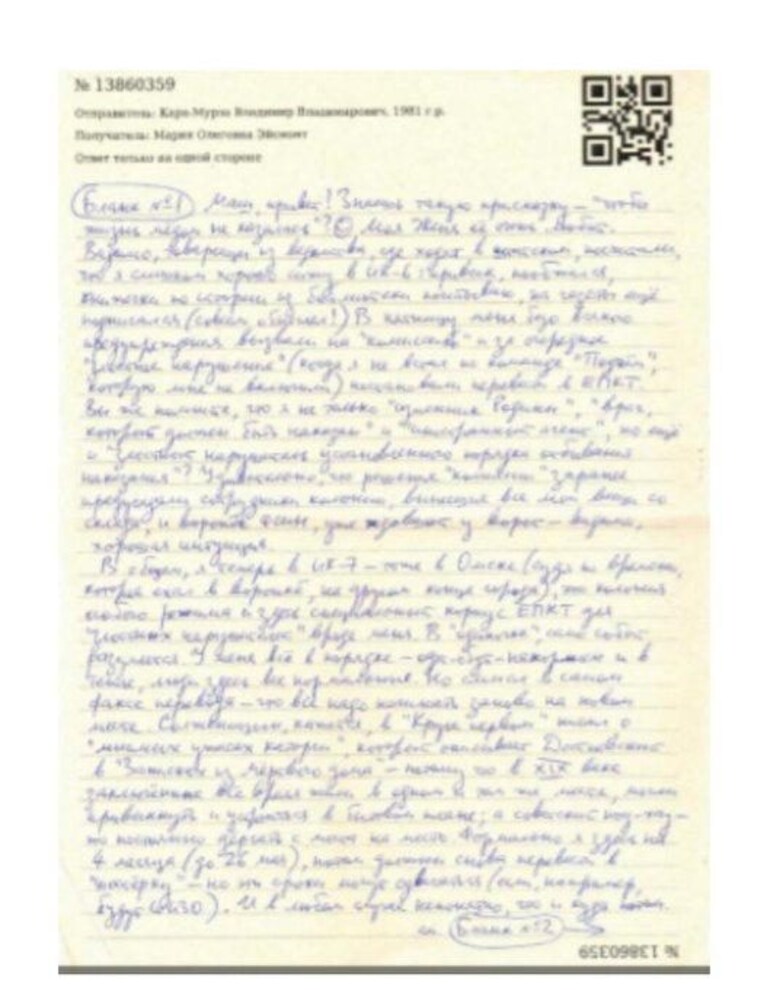 № 13860359
Отправитель: Кара-Мурза Владимир Владимирович, 1981 г.р.
Получатель: Мария Олеговна Эйсмонт
Ответ только на одной стороне
Бланк №1 Маш, привет! Знаешь такую присказку – "чтобы
жизнь медом не казалась"? Моя Женя её очень любит.
Видимо, товарищи из ведомства, где ходят в штатском, посчитали,
что я слишком хорошо сижу в ИК-6:
книжечки по истории из библиотеки на газеты ещё
подписался (совсем !) В пятницу меня безо всякого
предупреждения вызвали на "комиссию" и за очередное
"злостное нарушение" (когда я не встал по команде "Подъём",
которую мне не включили) постановили перевести в ЕПКТ.
Вы же помните, что я не только "изменник Родины", "враг,
который должен быть наказан" и "иностранный агент", но ещё
и "злостный нарушитель установленного порядка отбывания
наказания"? что решение "комиссии" заранее
предугадали сотрудники колонии, вынесшие все мои вещи со
склада, и водитель уже у ворот – видимо,
хорошая интуиция.
В общем, я теперь в ИК-7 – тоже в Омске (судя по времени,
которое ехал в воронке, на другом конце города), это колония
особого режима и здесь специальный корпус ЕПКТ для
"злостных нарушителей" вроде меня. В "одиночке", само собой
разумеется. У меня всё в порядке – и в
тепле, люди здесь все нормальные. Но в самом
факте перевода – что всё надо начинать заново на новом
месте. Солженицын, кажется, в "Круге первом" писал о
"мнимых ужасах каторги", которые описывает Достоевский
в "Записках из мёртвого дома" – потому что в XIX веке
заключённые всё время жили в одном и том же месте, могли
привыкнуть и устроиться в бытовом плане; а советское ноу-хау –
это постоянно дёргать с места на место. Формально я здесь на
4 месяца (до 26 мая), потом должны снова перевести в
– но эти сроки могут сдвигаться (если, например,
будут ШИЗО). И в любом случае непонятно, что и куда потом.
см. Бланк №2 →
№ 13860359